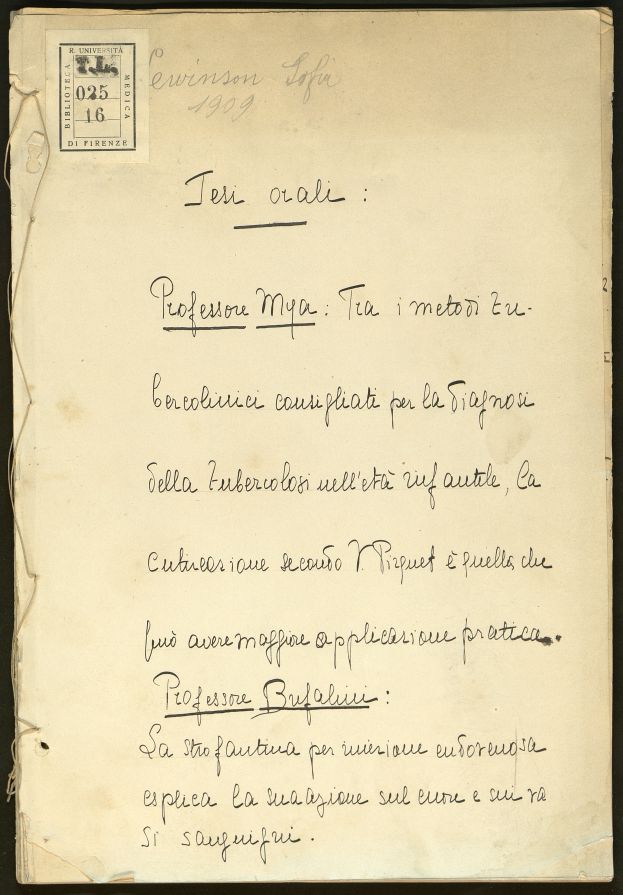 R. UNIVERSITÀ
BIBLIOTECA
MEDICA
DI FIRENZE
T.L.
025
16
Lewinson Sofia
1909
Tesi orali :
Professore Mya : Tra i metodi tu-
bercolinici consigliati per la diagnosi
della tubercolosi nell'età infantile, la
cutireazione secondo V. Pirquet è quella che
può avere maggiore applicazione pratica.
Professore Bufalini :
La strofantina per iniezione endovenosa
esplica la sua azione sul cuore e sui va
si sanguigni.